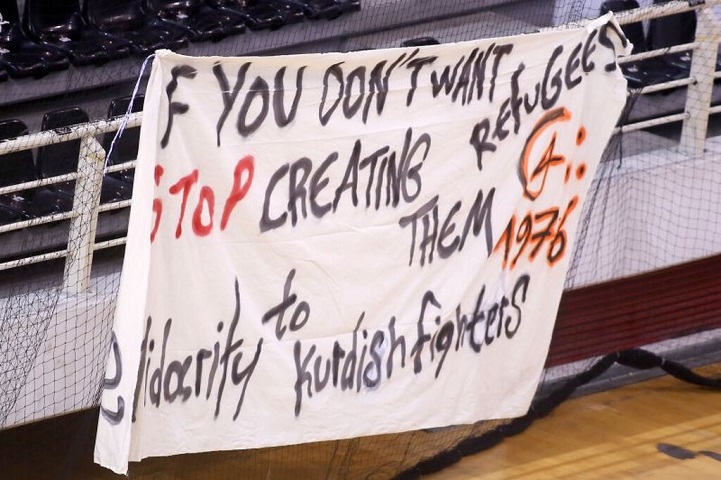 F YOU DON'T WANT REFUGEES
STOP CREATING THEM
1976
lidarity to
Kurdish fighters